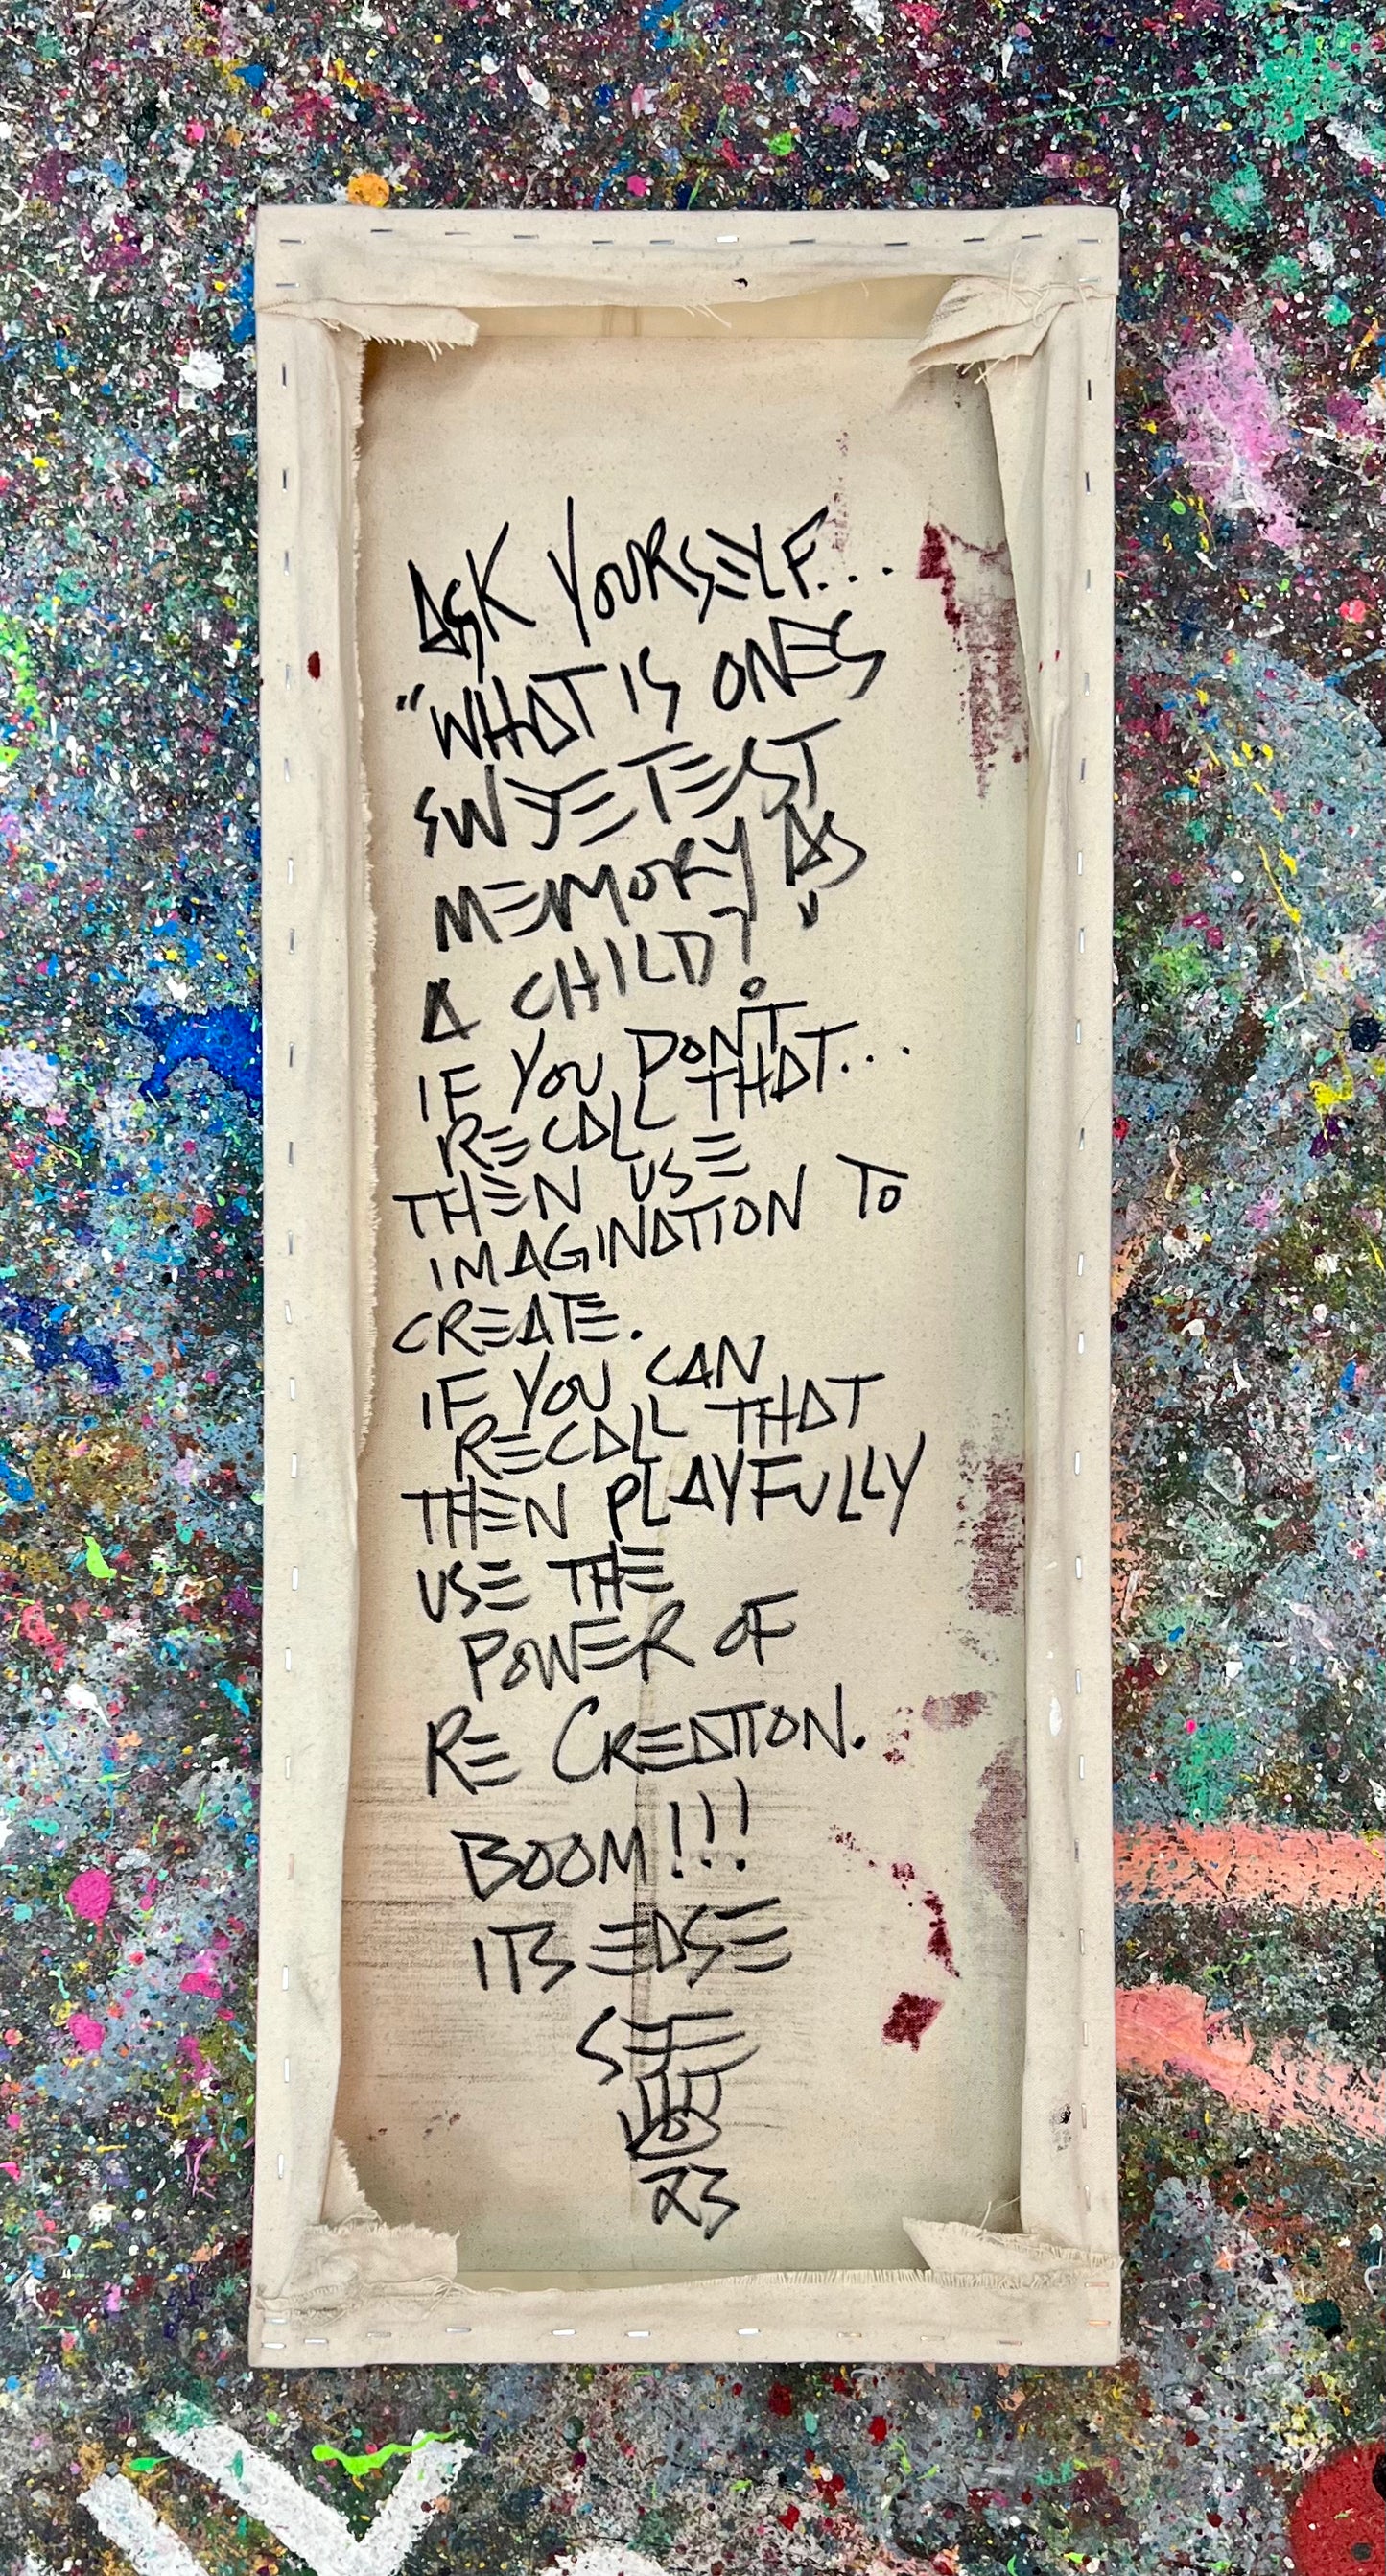 ASK YOURSELF...
"WHAT IS ONES
SWEETEST
MEMORY AS
A CHILD?"
IF YOU DON'T
RECALL THAT...
THEN USE
IMAGINATION TO
CREATE.
IF YOU CAN
RECALL THAT
THEN PLAYFULLY
USE THE
POWER OF
RE CREATION.
BOOM!!!
ITS EASE
SEE
23